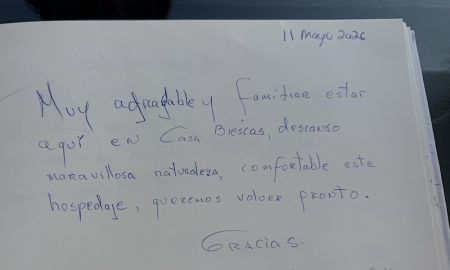 11 Mayo 2026
Muy agradable y familiar estar
aquí en Casa Biescas, descanso
maravillosa naturaleza, comfortable este
hospedaje, queremos volver pronto.
Gracias.